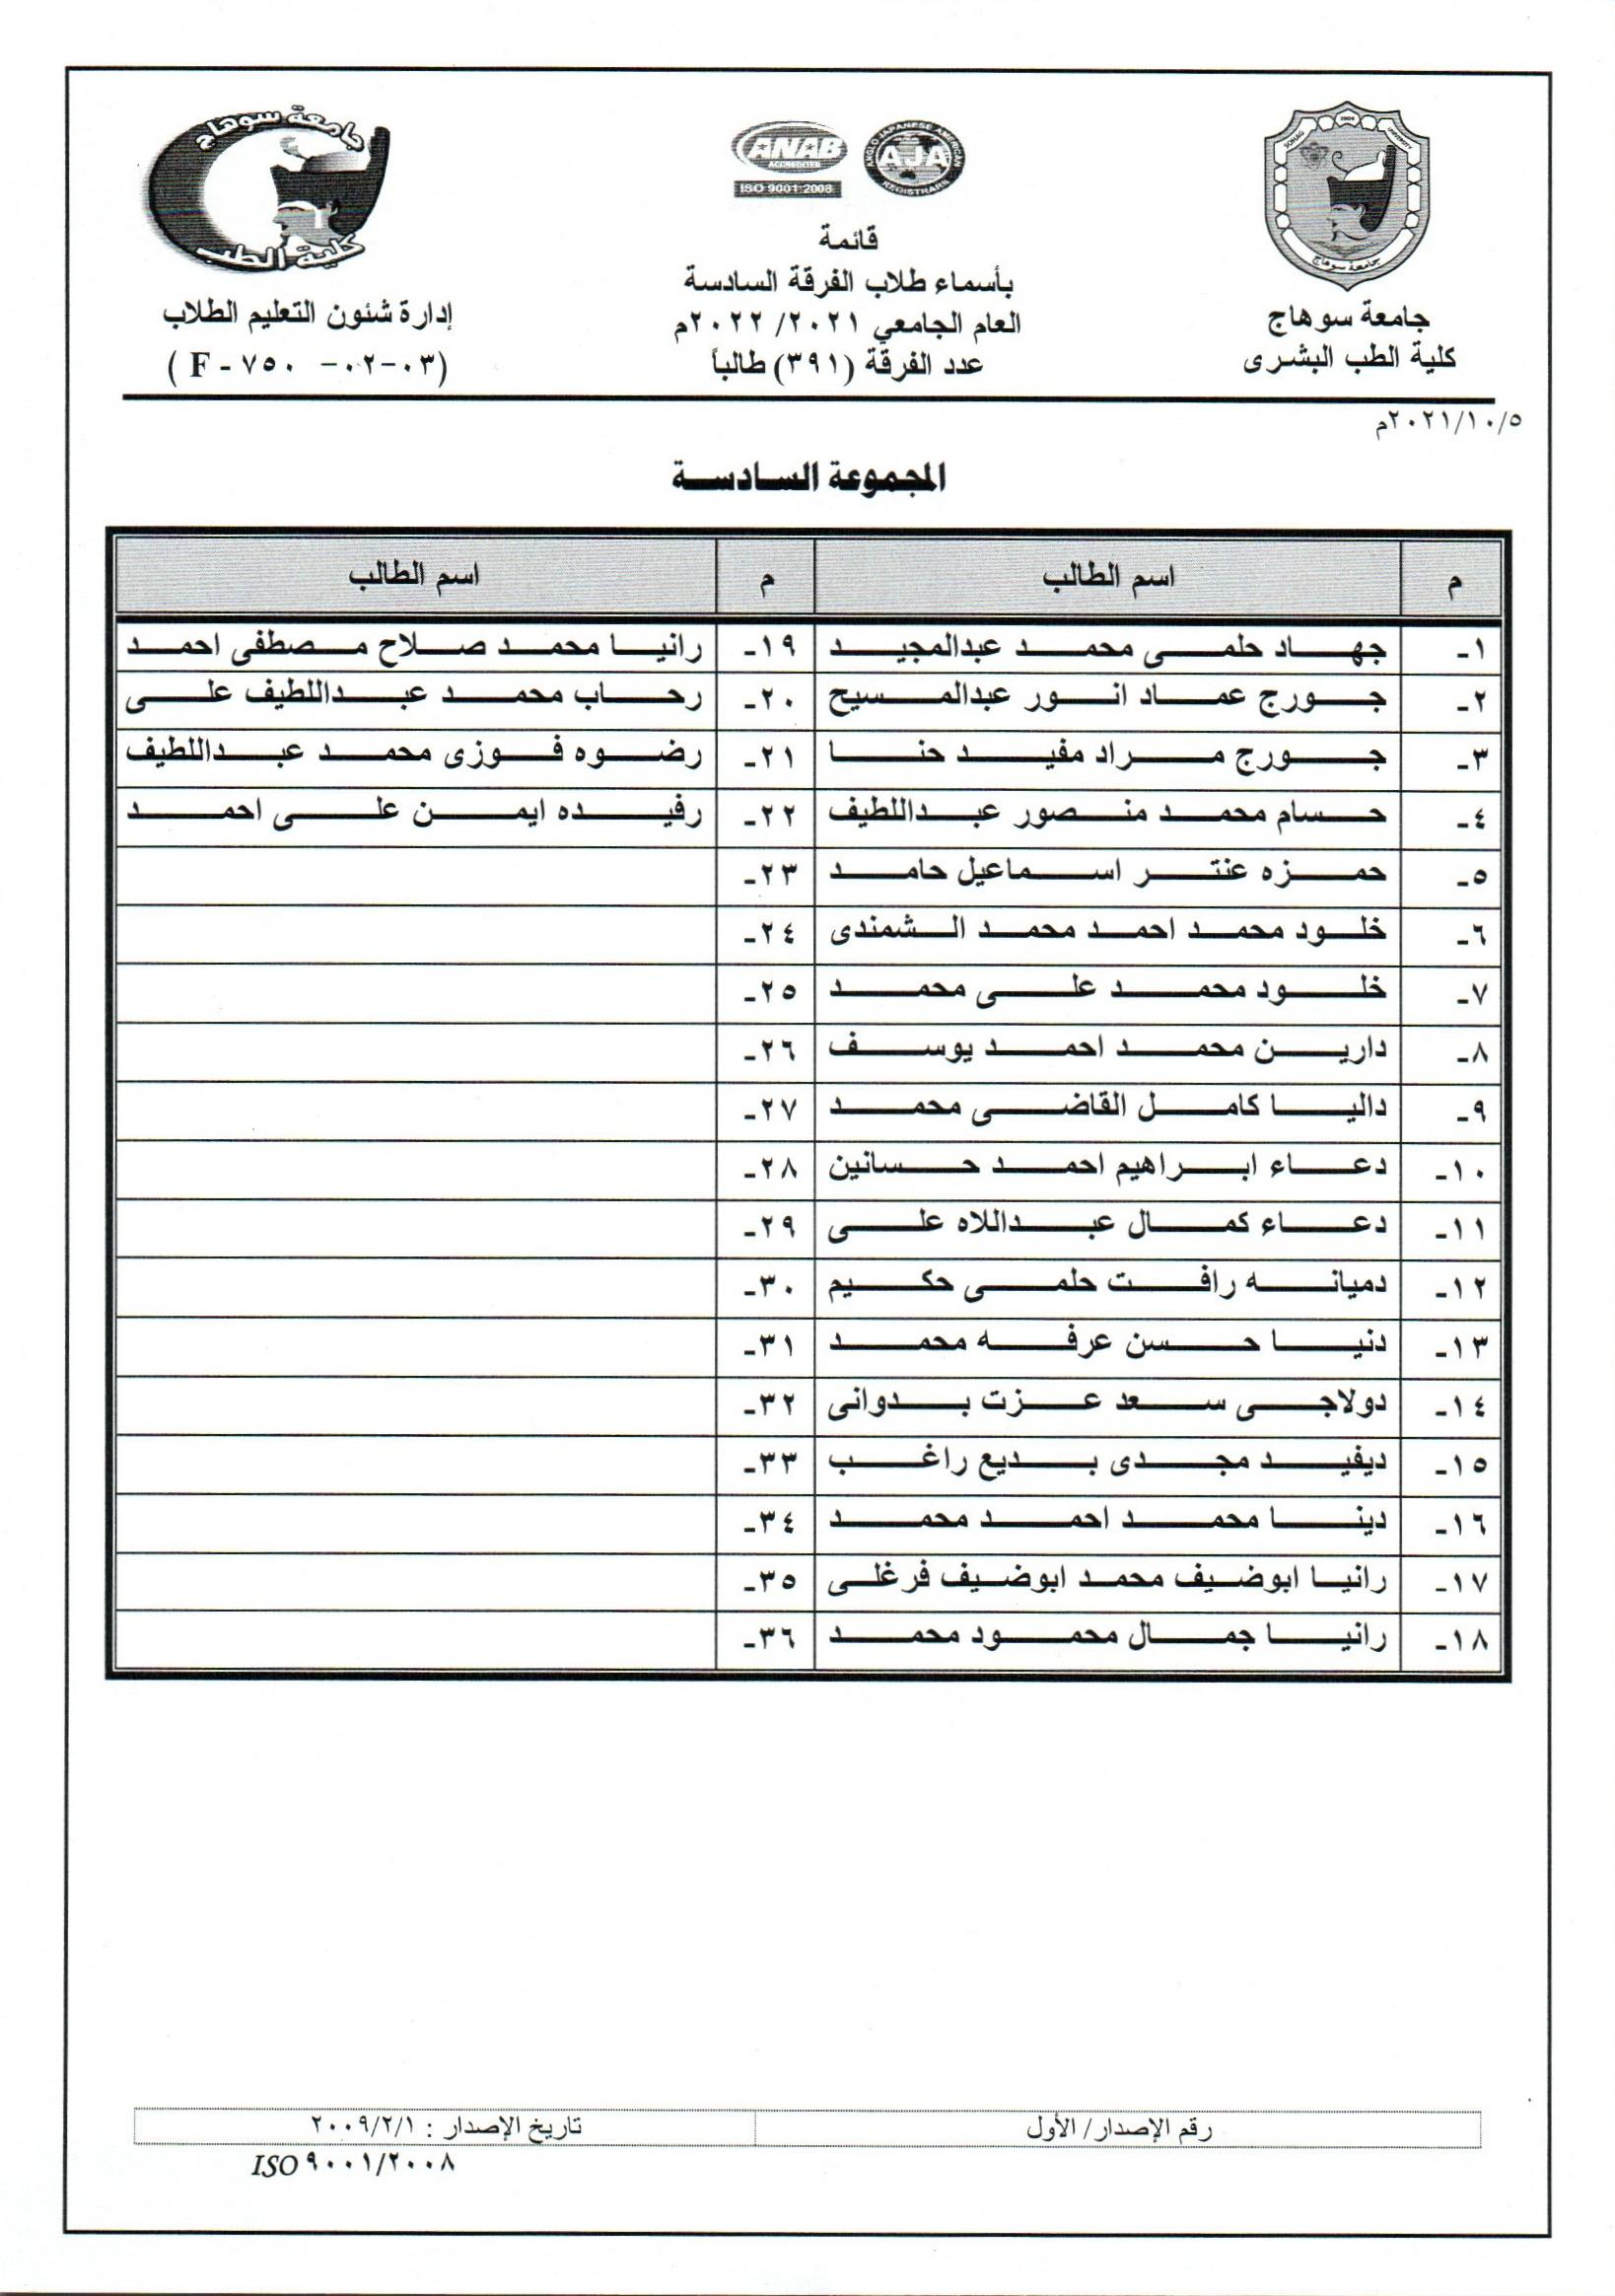 جامعة سوهاج
كلية الطب البشرى
SOHAG UNIVERSITY
جامعة سوهاج
ANAB
ACCREDITED
ISO 9001:2008
ANGLO JAPANESE AMERICAN
AJA
REGISTRARS
قائمة
بأسماء طلاب الفرقة السادسة
العام الجامعي ٢٠٢١/ ٢٠٢٢م
عدد الفرقة (٣٩١) طالباً
جامعة سوهاج
كلية الطب
إدارة شئون التعليم الطلاب
(٠٣-٠٢- ٧٥٠ - F )
٢٠٢١/١٠/٥م
المجموعة السادسة
م اسم الطالب م اسم الطالب
١- جهاد حلمى محمد عبدالمجيد ١٩- رانيا محمد صلاح مصطفى احمد
٢- جورج عماد انور عبدالمسيح ٢٠- رحاب محمد عبداللطيف على
٣- جورج مراد مفيد حنا ٢١- رضوه فوزى محمد عبداللطيف
٤- حسام محمد منصور عبداللطيف ٢٢- رفيده ايمن على احمد
٥- حمزه عنتر اسماعيل حامد ٢٣-
٦- خلود محمد احمد محمد الشمندى ٢٤-
٧- خلود محمد على محمد ٢٥-
٨- دارين محمد احمد يوسف ٢٦-
٩- داليا كامل القاضى محمد ٢٧-
١٠- دعاء ابراهيم احمد حسانين ٢٨-
١١- دعاء كمال عبداللاه على ٢٩-
١٢- دميانه رافت حلمى حكيم ٣٠-
١٣- دنيا حسن عرفه محمد ٣١-
١٤- دولاجى سعد عزت بدوانى ٣٢-
١٥- ديفيد مجدى بديع راغب ٣٣-
١٦- دينا محمد احمد محمد ٣٤-
١٧- رانيا ابوضيف محمد ابوضيف فرغلى ٣٥-
١٨- رانيا جمال محمود محمد ٣٦-
رقم الإصدار/ الأول تاريخ الإصدار : ٢٠٠٩/٢/١
ISO ٩٠٠١/٢٠٠٨